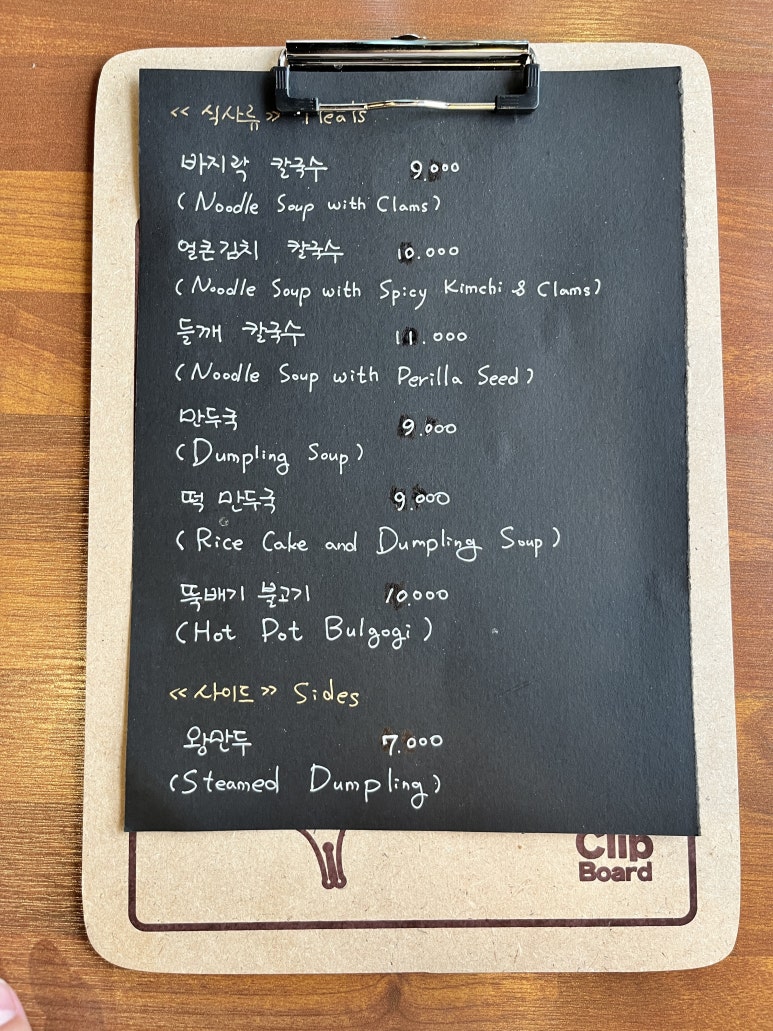 << 식사류 >> Meals
바지락 칼국수 9.000
(Noodle Soup with Clams)
얼큰김치 칼국수 10.000
(Noodle Soup with Spicy Kimchi & Clams)
들깨 칼국수 11.000
(Noodle Soup with Perilla Seed)
만두국 9.000
(Dumpling Soup)
떡 만두국 9.000
(Rice Cake and Dumpling Soup)
뚝배기 불고기 10.000
(Hot Pot Bulgogi)
<< 사이드 >> Sides
왕만두 7.000
(Steamed Dumpling)
Clip
Board